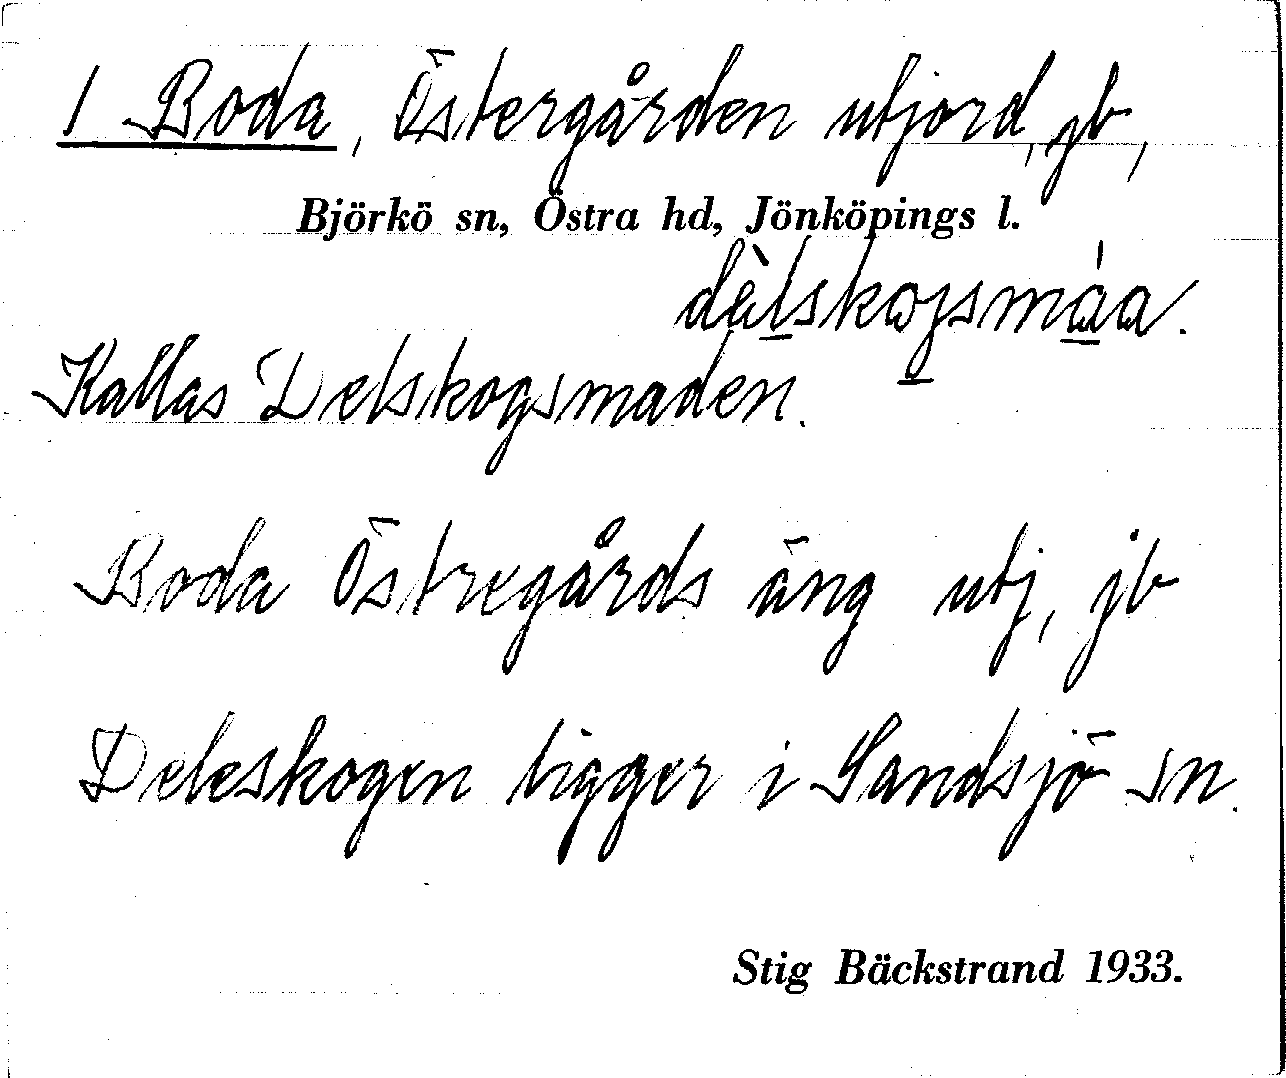 1 Boda, Östergården utjord, jb,
Björkö sn, Östra hd, Jönköpings l.
dèlskojsmáa.
Kallas Delskogsmaden.
Boda Östregårds äng utj, jb
Deleskogen ligger i Sandsjö sn.
Stig Bäckstrand 1933.